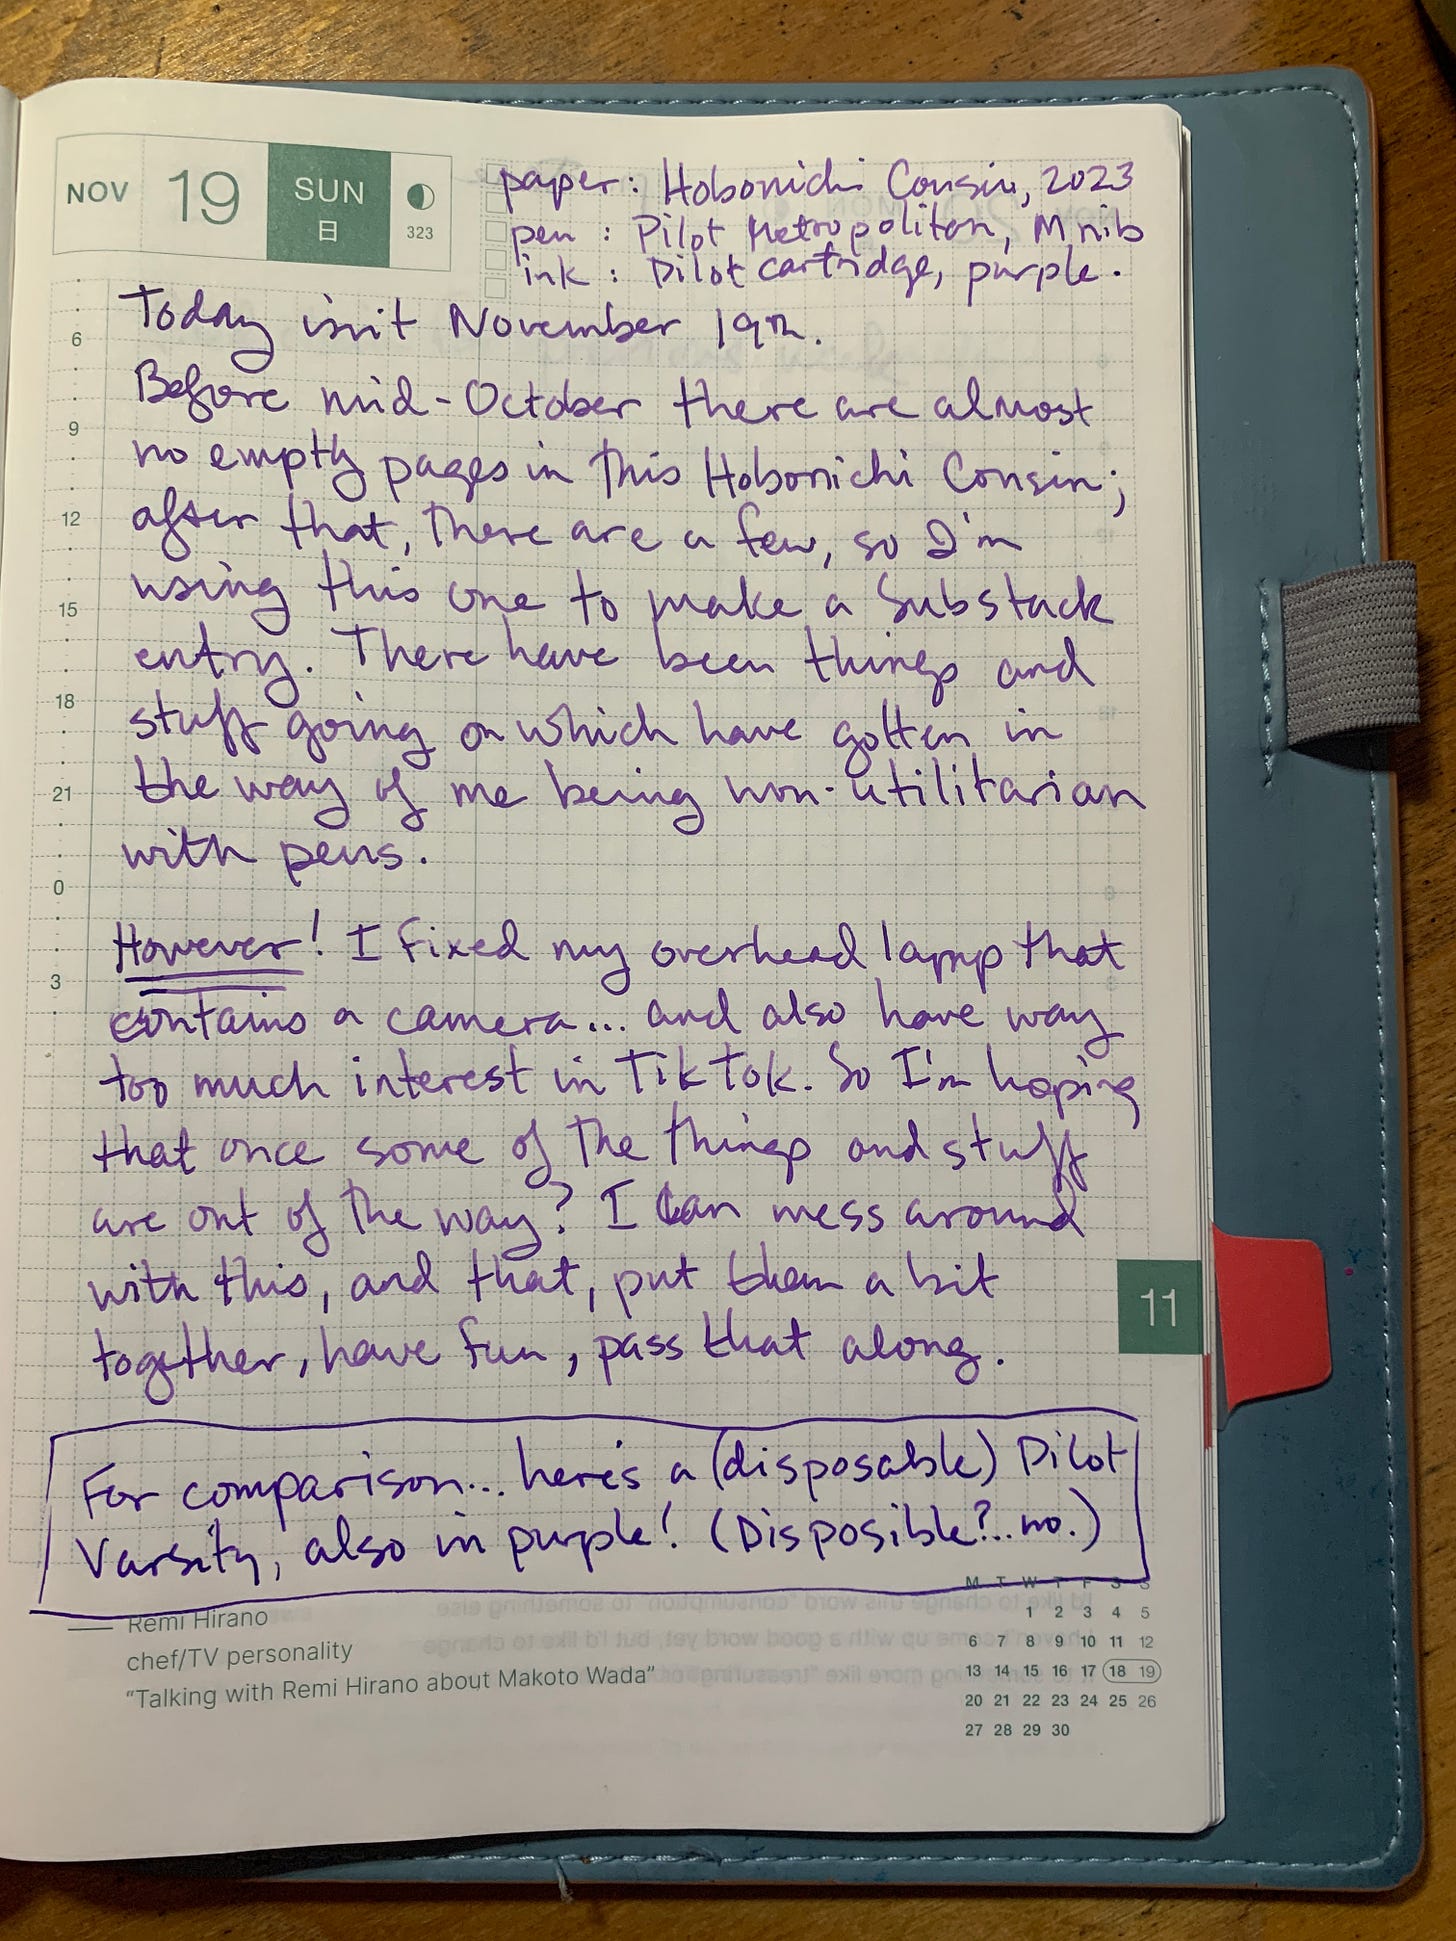 NOV 19 SUN 日 323
paper: Hobonichi Cousin, 2023
pen : Pilot Metropolitan, M nib
ink : Pilot cartridge, purple.
Today isn't November 19th.
6
Before mid-October there are almost
9
no empty pages in this Hobonichi Cousin;
12
after that, there are a few, so I'm
using this one to make a Substack
15
entry. There have been things and
18
stuff going on which have gotten in
21
the way of me being non-utilitarian
with pens.
0
However! I fixed my overhead lamp that
3
contains a camera... and also have way
too much interest in TikTok. So I'm hoping
that once some of the things and stuff
are out of the way? I can mess around
with this, and that, put them a bit
11
together, have fun, pass that along.
For comparison... here's a (disposable) Pilot
Varsity, also in purple! (Disposible?..no.)
Remi Hirano
chef/TV personality
"Talking with Remi Hirano about Makoto Wada"
M T W T F S S
1 2 3 4 5
6 7 8 9 10 11 12
13 14 15 16 17 18 19
20 21 22 23 24 25 26
27 28 29 30